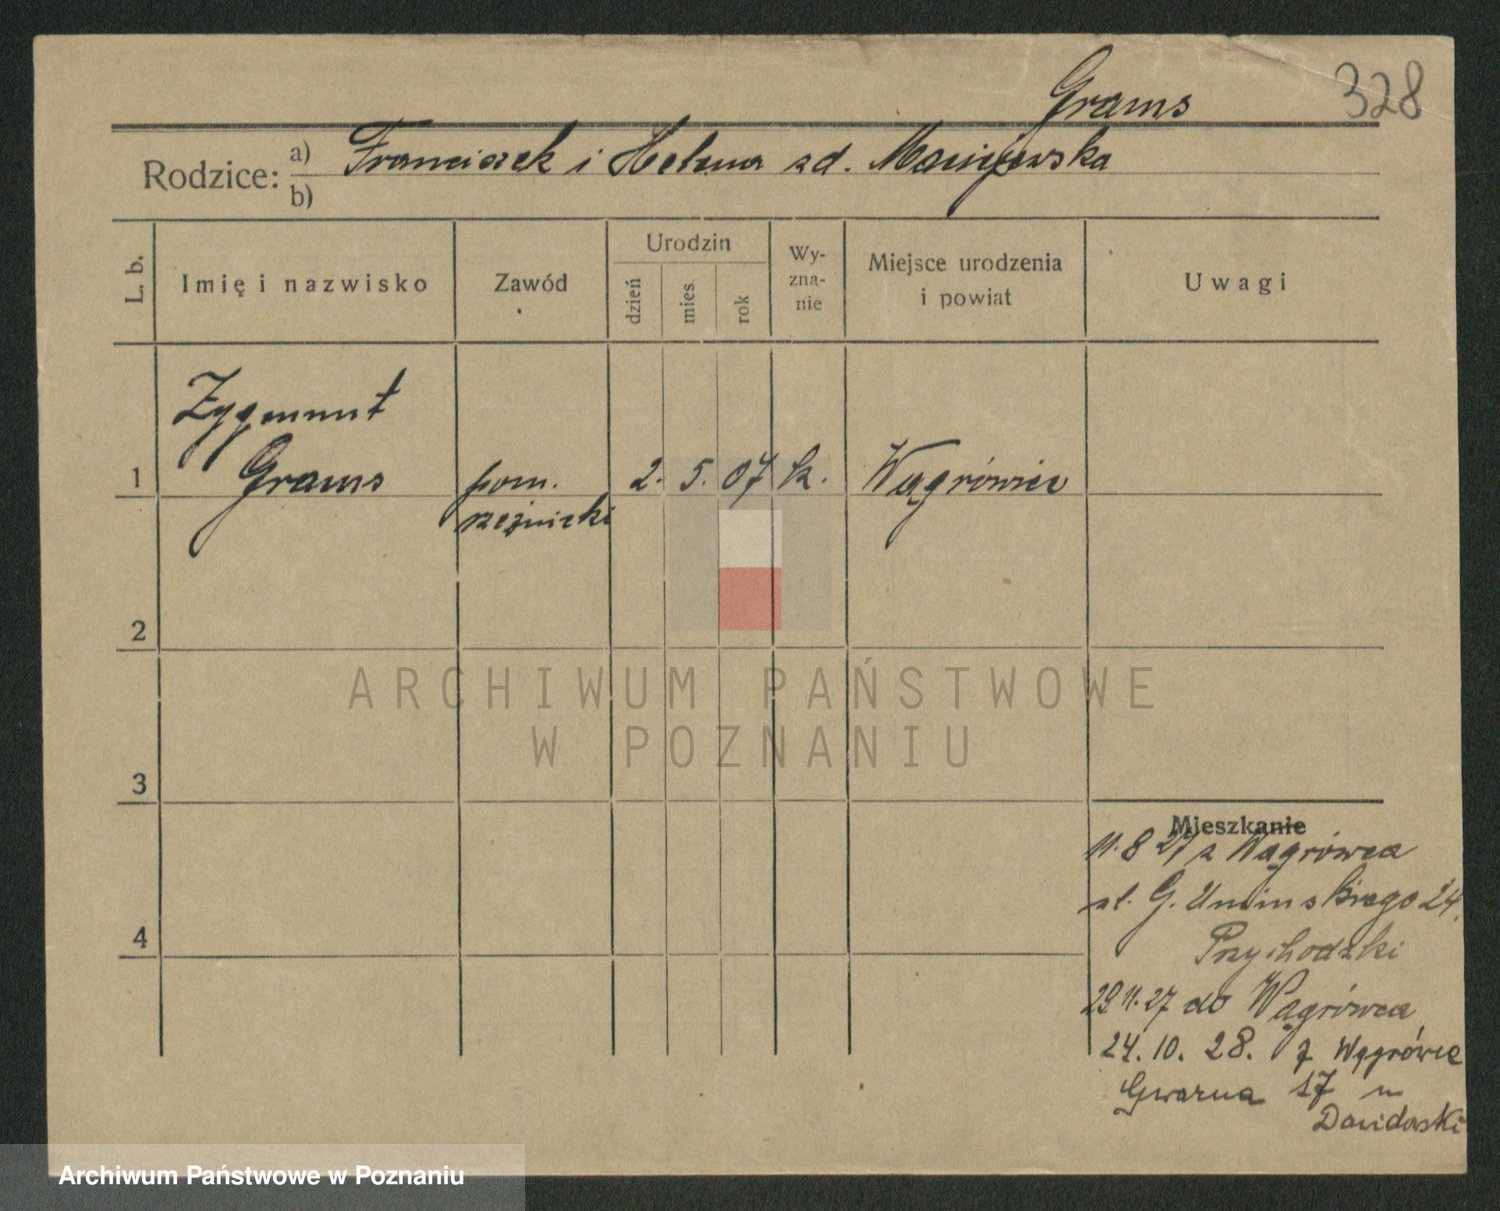 Grams
328
Rodzice: a) Franciszek i Helena zd. Maciejewska
b)
L. b.
Imię i nazwisko
Zawód
Urodzin
dzień
mies.
rok
Wy-
zna-
nie
Miejsce urodzenia
i powiat
Uwagi
Zygmunt
1 Grams pom. 2. 5. 07 k. Wągrówiec
rzeźnicki
2
3
4
ARCHIWUM PAŃSTWOWE
W POZNANIU
Mieszkanie
11.8 27 z Wągrówca
ul. G. Umińskiego 24.
Przychodzki
29 11. 27 do Wągrówca
24. 10. 28. z Wągrówie
Gwarna 17
Dawidowski
Archiwum Państwowe w Poznaniu